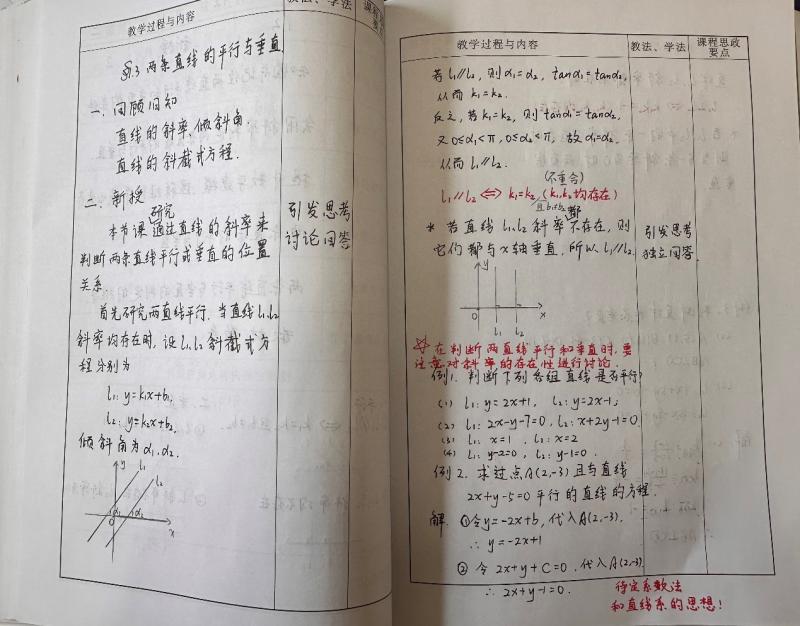 教学过程与内容
教法、学法
§1.3 两条直线的平行与垂直
一、回顾旧知
直线的斜率、倾斜角.
直线的斜截式方程.
二、新授
研究
本节课通过直线的斜率来
判断两条直线平行或垂直的位置
关系.
引发思考
讨论回答
首先研究两直线平行.当直线l₁、l₂
斜率均存在时,设l₁、l₂斜截式方
程分别为
l₁: y=k₁x+b₁,
l₂: y=k₂x+b₂,
倾斜角为α₁、α₂.
y l₁ l₂
α₁ α₂
O x
教学过程与内容
教法、学法
课程思政
要点
若l₁∥l₂, 则α₁=α₂, tanα₁=tanα₂,
从而 k₁=k₂.
反之,若k₁=k₂,则tanα₁=tanα₂,
又0≤α₁<π, 0≤α₂<π, 故α₁=α₂.
从而 l₁∥l₂.
(不重合)
l₁∥l₂ ⇔ k₁=k₂ (k₁,k₂均存在)
且b₁≠b₂
都
* 若直线l₁、l₂斜率不存在, 则
它们都与x轴垂直. 所以l₁∥l₂.
引发思考
独立回答
y
O x
l₁ l₂
☆在判断两直线平行和垂直时,要
注意对斜率的存在性进行讨论.
例1. 判断下列各组直线是否平行?
(1) l₁: y=2x+1, l₂: y=2x-1,
(2) l₁: 2x-y-7=0, l₂: x+2y-1=0
(3) l₁: x=1 , l₂: x=2
(4) l₁: y-2=0 , l₂: y-1=0.
例2. 求过点A(2,-3)且与直线
2x+y-5=0平行的直线的方程.
解. ①令y=-2x+b, 代入A(2,-3).
∴ y=-2x+1
② 令 2x+y+C=0. 代入A(2,-3)
∴ 2x+y-1=0.
待定系数法
和直线系的思想!